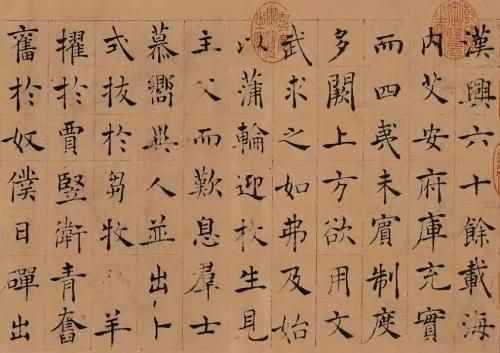 漢興六十餘載海
内艾安府庫充實
而四夷未賓制度
多闕上方欲用文
武求之如弗及始
以蒲輪迎枚生見
主父而歎息羣士
慕嚮異人並出卜
式拔於芻牧羊
擢於賈豎衛青奮
舊於奴僕日磾出